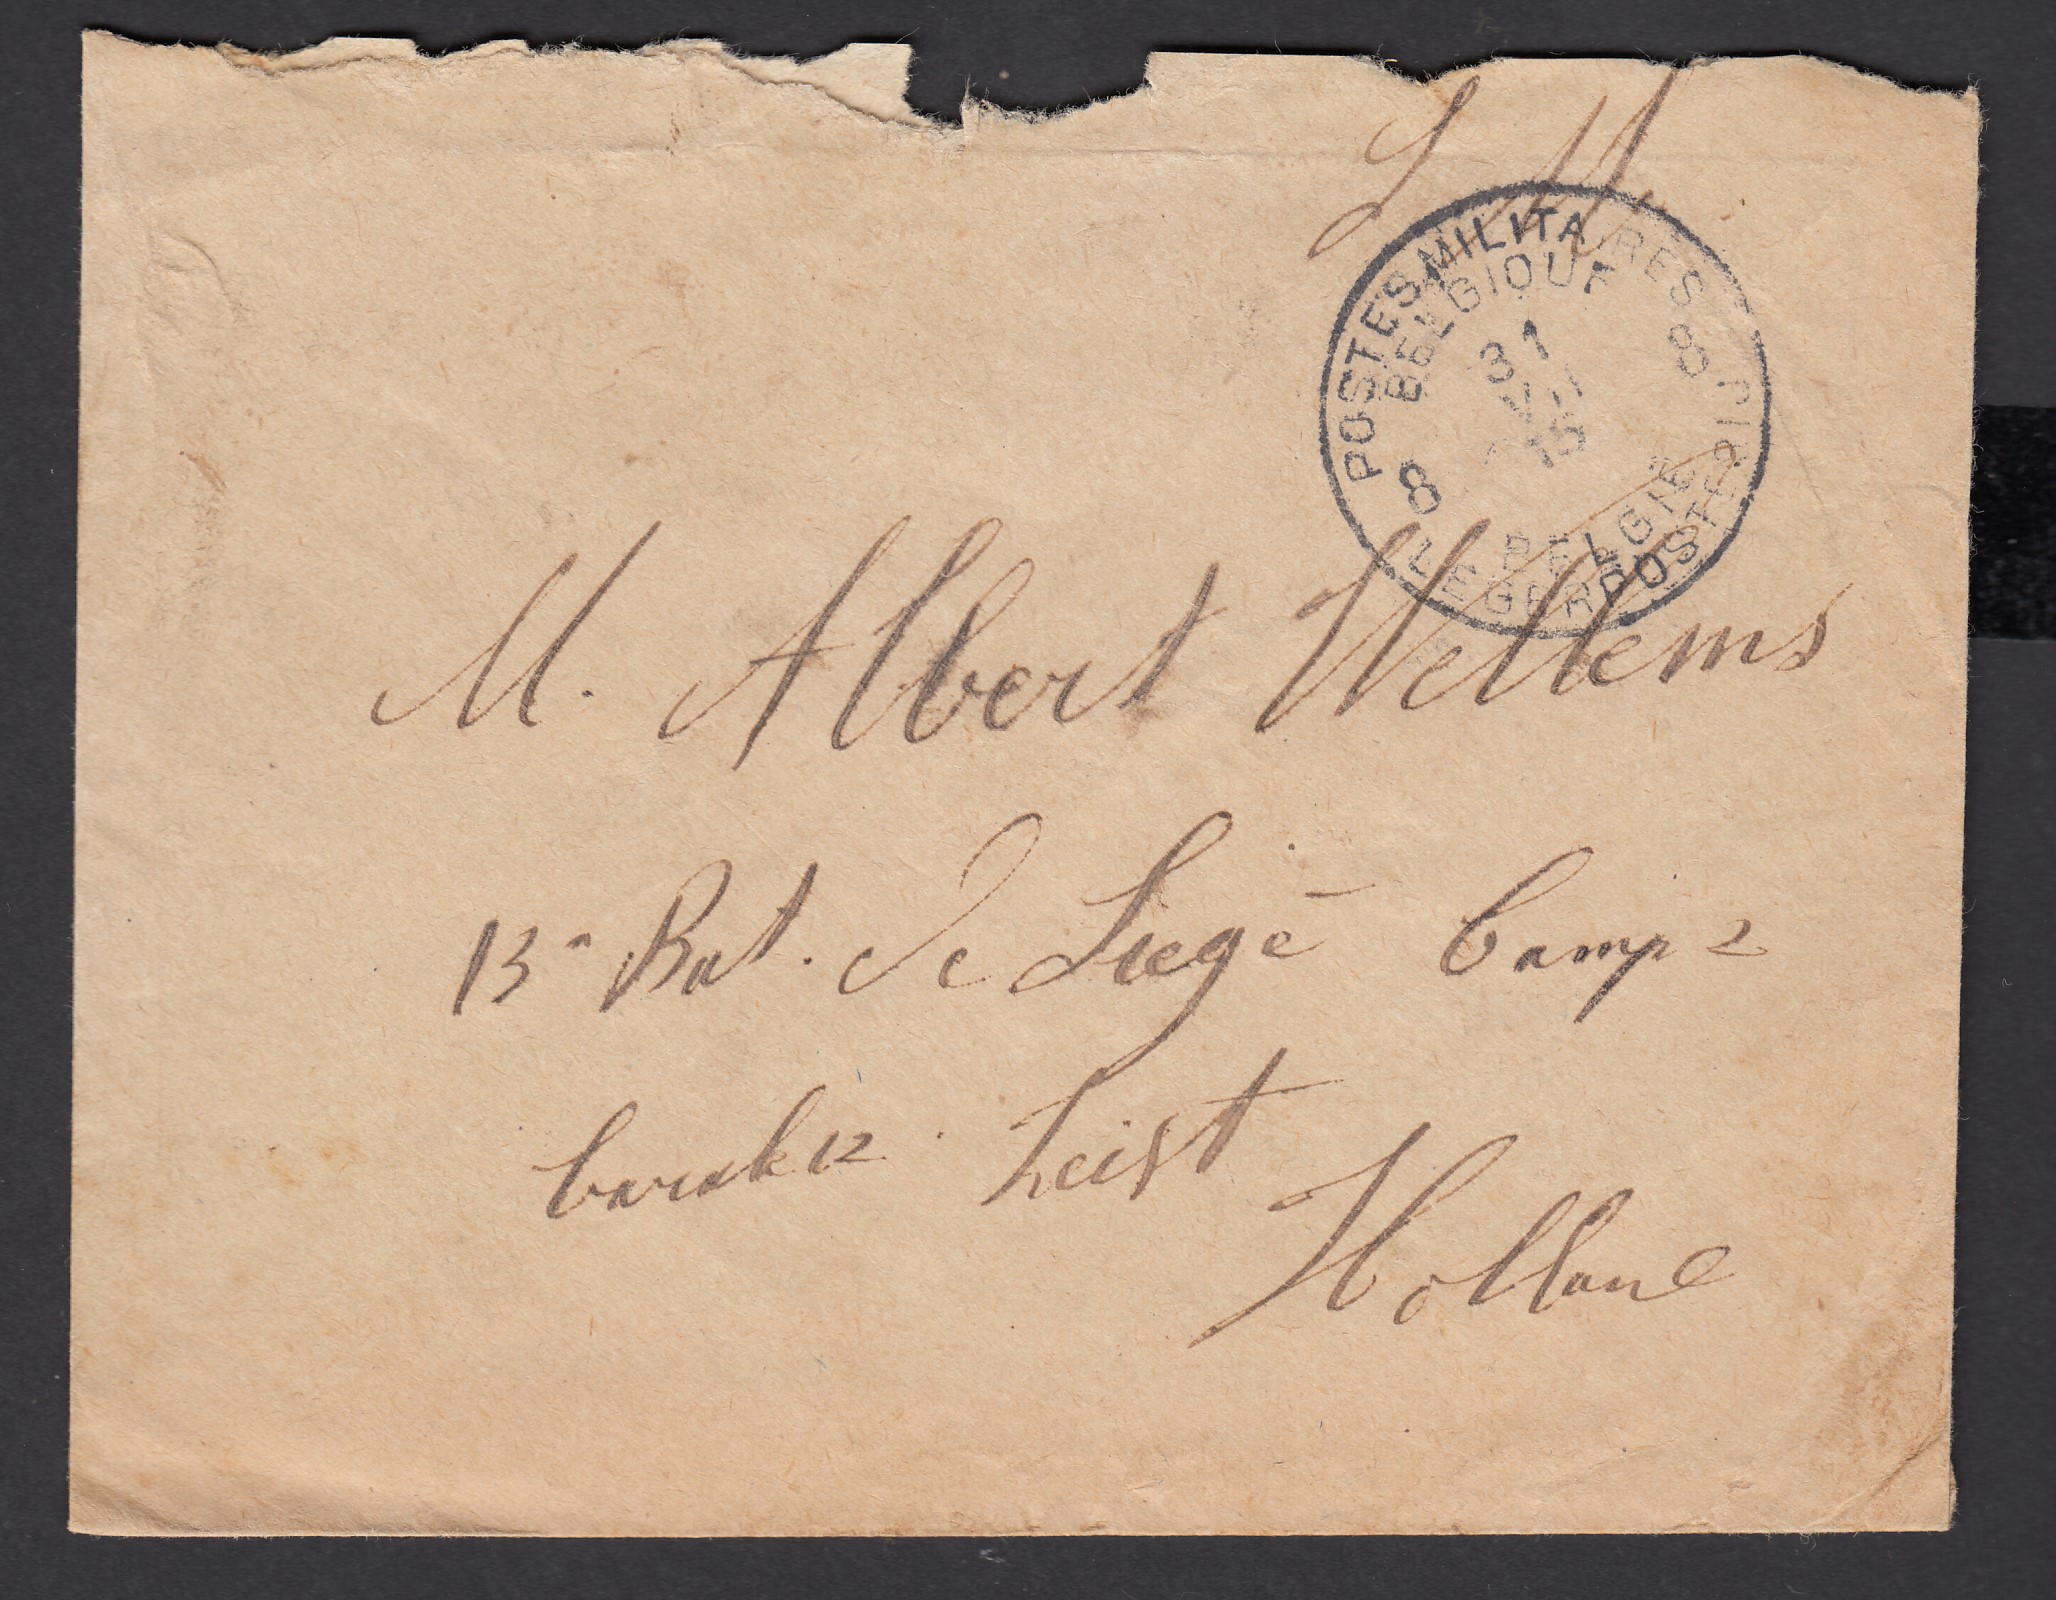 S. M.
POSTES MILITAIRES
BELGIQUE
8
31
15
8
BELGIË
LEGERPOSTERIJ
M. Albert Wellems
13e Bat. de Liegé Camp 2
barak 12 Zeist
Holland